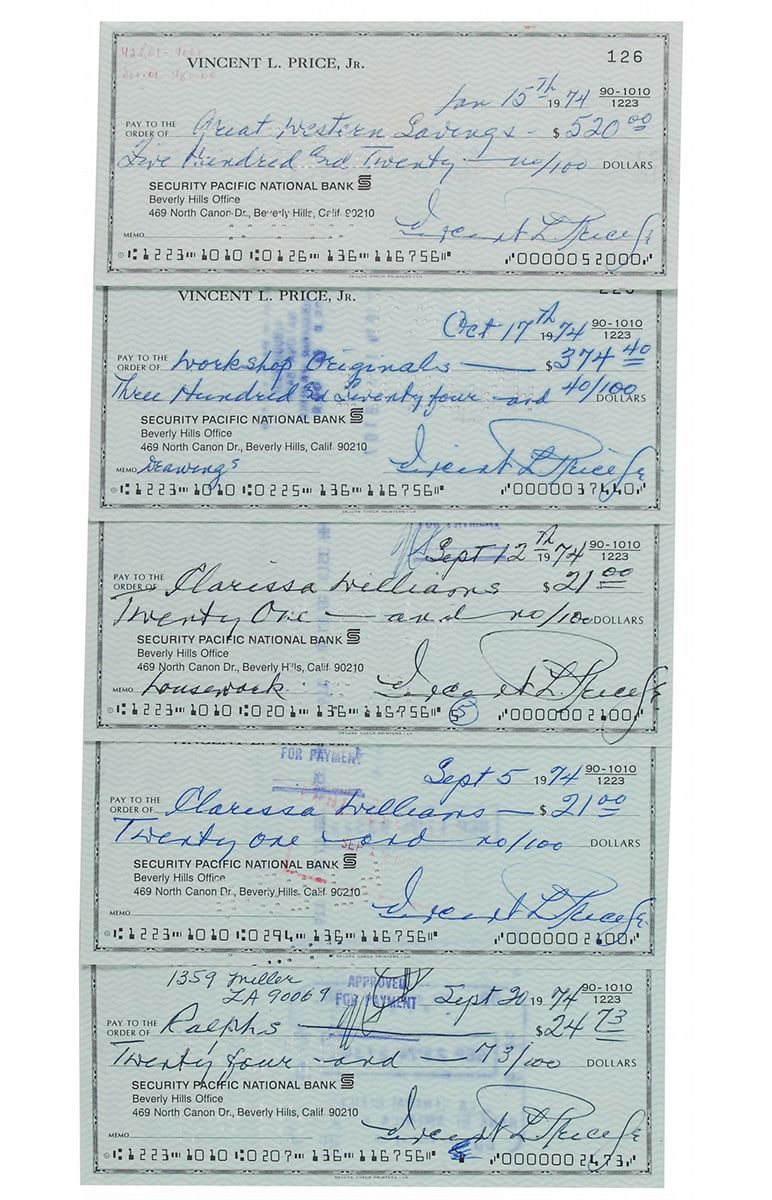 VINCENT L. PRICE, JR. 126
Jan 15th 1974 90-1010
1223
PAY TO THE
ORDER OF Great Western Savings - $ 520 00
Five Hundred and Twenty — no/100 DOLLARS
SECURITY PACIFIC NATIONAL BANK
Beverly Hills Office
469 North Canon Dr., Beverly Hills, Calif. 90210
MEMO Vincent L Price Jr
1223 1010 0126 136 116756 0000052000
VINCENT L. PRICE, JR.
Oct 17th 1974 90-1010
1223
PAY TO THE
ORDER OF Workshop Originals — $ 374 40
Three Hundred and Seventy four and 40/100 DOLLARS
SECURITY PACIFIC NATIONAL BANK
Beverly Hills Office
469 North Canon Dr., Beverly Hills, Calif. 90210
MEMO Drawings Vincent L Price Jr
1223 1010 0225 136 116756 0000037440
DELUXE CHECK PRINTERS - LM
FOR PAYMENT
Sept 12th 1974 90-1010
1223
PAY TO THE
ORDER OF Clarissa Williams $ 21 00
Twenty One — and no/100 DOLLARS
SECURITY PACIFIC NATIONAL BANK
Beverly Hills Office
469 North Canon Dr., Beverly Hills, Calif. 90210
MEMO housework Vincent L Price Jr
1223 1010 0201 136 116756 5 0000002100
DELUXE CHECK PRINTERS - LM
VINCENT L. PRICE, JR.
FOR PAYMENT
Sept 5 1974 90-1010
1223
PAY TO THE
ORDER OF Clarissa Williams — $ 21 00
Twenty one — and no/100 DOLLARS
SECURITY PACIFIC NATIONAL BANK
Beverly Hills Office
469 North Canon Dr., Beverly Hills, Calif. 90210
MEMO Vincent L Price Jr
1223 1010 0294 136 116756 0000002100
DELUXE CHECK PRINTERS - LM
1359 Miller
LA 90069
APPROVED
FOR PAYMENT
Sept 20 1974 90-1010
1223
PAY TO THE
ORDER OF Ralphs — $ 24 73
Twenty four - and — 73/100 DOLLARS
SECURITY PACIFIC NATIONAL BANK
Beverly Hills Office
469 North Canon Dr., Beverly Hills, Calif. 90210
MEMO Vincent L Price Jr
1223 1010 0207 136 116756 0000002473
DELUXE CHECK PRINTERS - LM